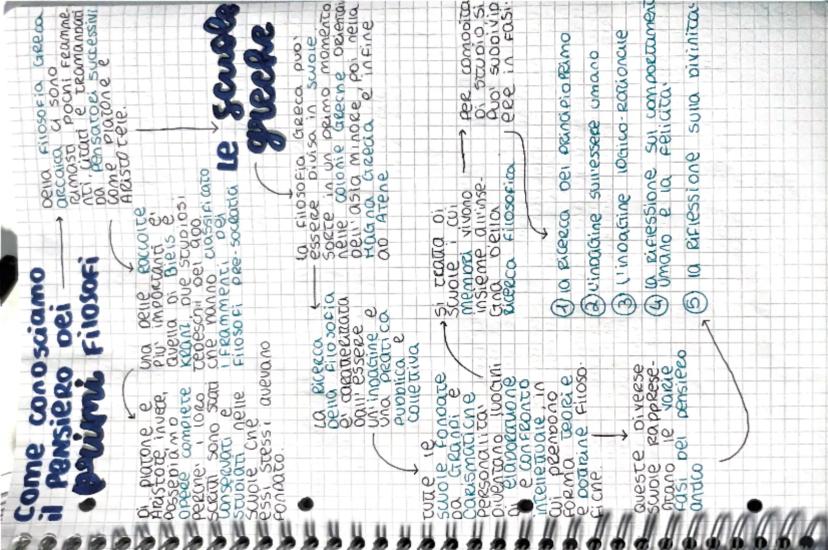 Come conosciamo
il pensiero dei
primi filosofi
Della filosofia Greca
arcaica ci sono
rimasti pochi framme-
nti citati e tramandati
da pensatori successivi
come platone e
Aristotele.
una delle raccolte
più importanti è
quella di Diels e
Kranz due studiosi
tedeschi del 1900
che hanno classificato
i frammenti dei
filosofi pre-socratici
Di platone e
Aristotele invece,
possediamo
opere complete
perchè i loro
scritti sono stati
conservati e
studiati nelle
scuole che
essi stessi avevano
fondato.
Le scuole
greche
la filosofia Greca può
essere divisa in scuole
sorte in un primo momento
nelle colonie Greche orientali
dell'asia minore, poi nella
Magna Grecia e infine
ad Atene
la ricerca
della filosofia
è caratterizzata
dall'essere
un'indagine e
una pratica
pubblica e
collettiva
tutte le
scuole fondate
da Grandi e
carismatiche
personalità
diventano luoghi
di elaborazione
e confronto
intellettuale, in
cui prendono
forma teorie e
dottrine filoso-
fiche.
Si tratta di
scuole i cui
membri vivono
insieme all'inse-
gna della
ricerca filosofica
per comodità
di studio si
può suddivid
ere in fasi.
Queste diverse
scuole rapprese-
ntano le varie
fasi del pensiero
antico
① la ricerca del principio primo
② l'indagine sull'essere umano
③ l'indagine logico-razionale
④ la riflessione sui comportamenti
umano e la felicità.
⑤ la riflessione sulla divinità.